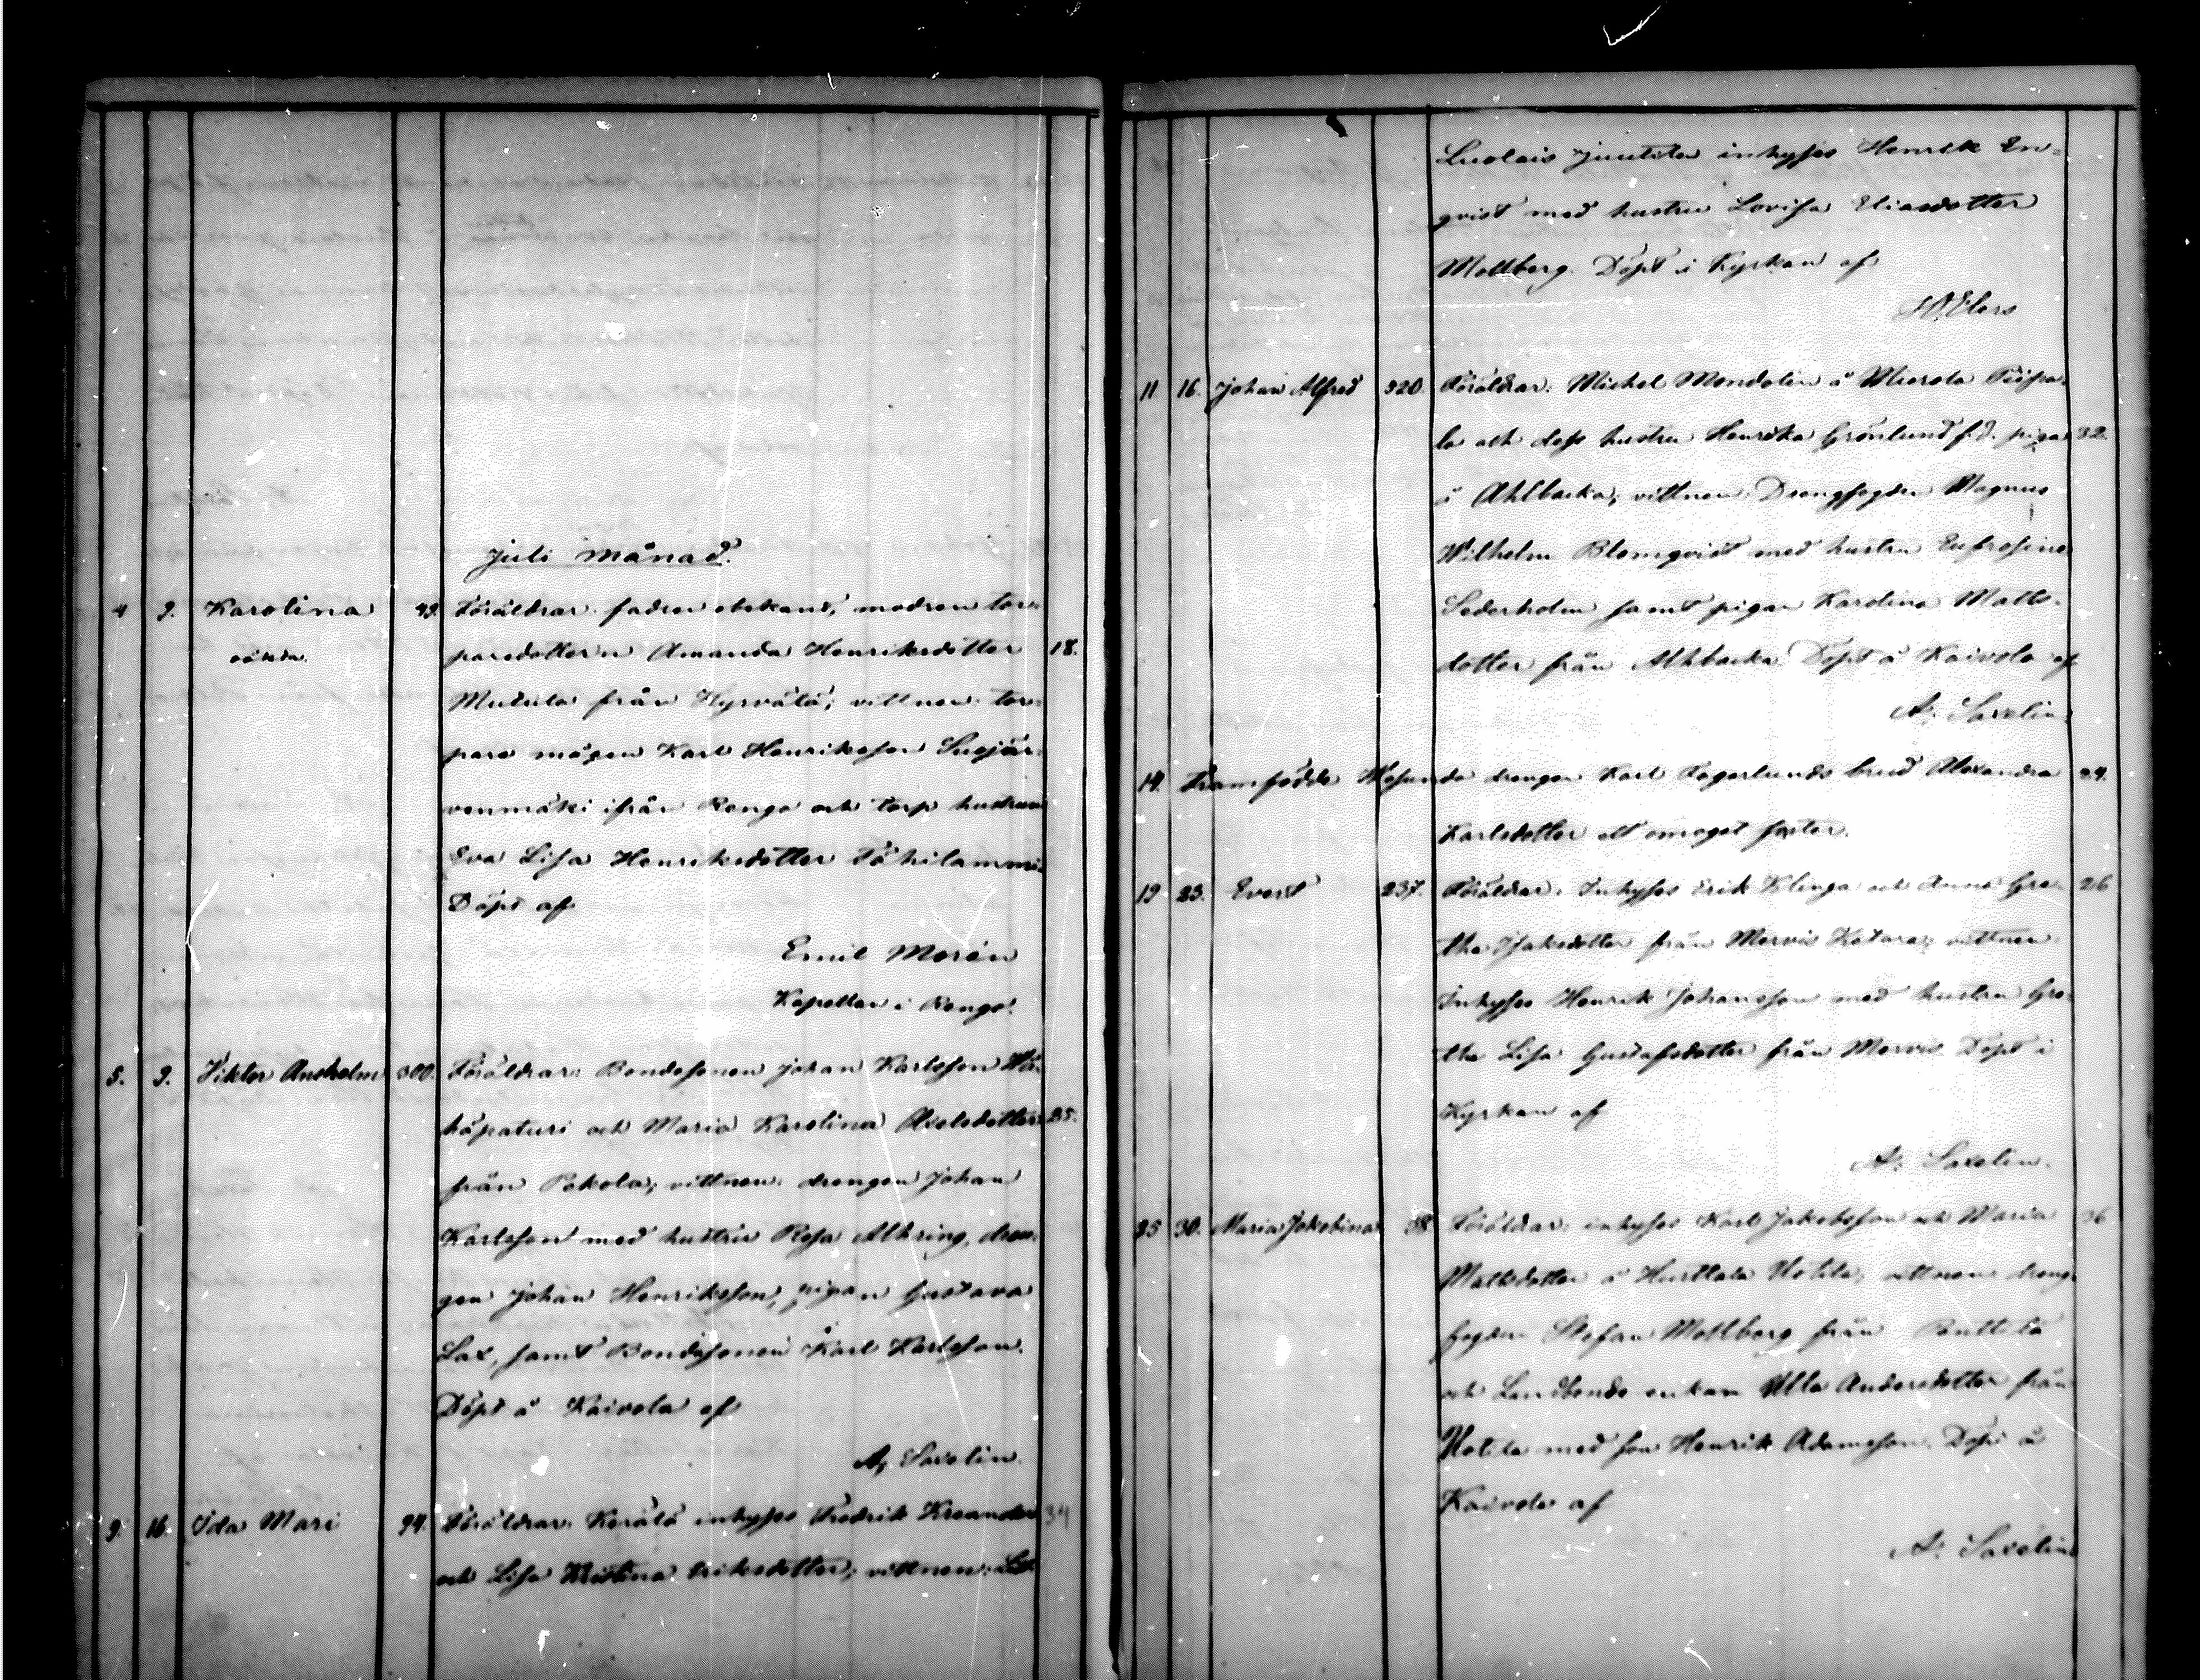 Juli månad.
4 9. Karolina 93. Föräldrar: fadren obekant, modren tor-
oäkta. paredottern Amanda Henriksdotter 18.
från Hyrvälä; vittnen: tor-
pare mågen Karl Henriksson Suojär-
venmäki ifrån Rengo och torp hustrun
Eva Lisa Henriksdotter
Döpt af
Emil Morén
Kapellan i Rengo.
8. 9. Viktor Anshelm 300. Föräldrar: Bondesonen Johan Karlsson
och Maria Karolina Axelsdotter 25.
från Pekola; vittnen: drengen Johan
Karlsson med hustru Rosa Ahlring, dren-
gen Johan Henriksson, pigan Gustava
Lax, samt Bondesonen Karl Karlsson.
Döpt å Kaivola af
A. Saxelin.
9. 16. Ida Mari 94. Föräldrar: Kerälä inhyses Fredrik Kreander 34
och Lisa Kristina Eriksdotter; vittnen:
Juutila inhyses Henrik En-
qvist med hustru Lovisa Eliasdotter
Mollberg. Döpt i Kyrkan af
11 16. Johan Alfred 320. Föräldrar: Michel Mandelin å
la och dess hustru Henrika Grönlund f.d. piga 32.
å Ahlbacka; vittnen: Drengfogden Magnus
Wilhelm Blomqvist med hustru Eufrosine
Sederholm samt pigan Karolina Matts-
dotter från Ahlbacka. Döpt å Kaivola af
A. Saxelin.
14. Framfödde drengen Karl Fagerlunds brud Alexandra 24.
Karlsdotter ett omoget foster.
19 23. Evert 237. Föräldrar: Inhyses Erik Klinga och Anna Gre- 26
tha Isaksdotter från Mervis vittnen:
Inhyses Henrik Johansson med hustru Gre-
tha Lisa Gustafsdotter från Mervis. Döpt i
Kyrkan af
A. Saxelin.
25 30. Maria Jakobina 88 Föräldrar: inhyses Karl Jakobsson och Maria 36
Mattsdotter å Hurttala Uotila; vittnen: dreng-
fogden Stefan Mollberg från
och Landbonde enkan Ulla Andersdotter från
Uotila med son Henrik Adamsson. Döpt å
Kaivola af
A. Saxelin